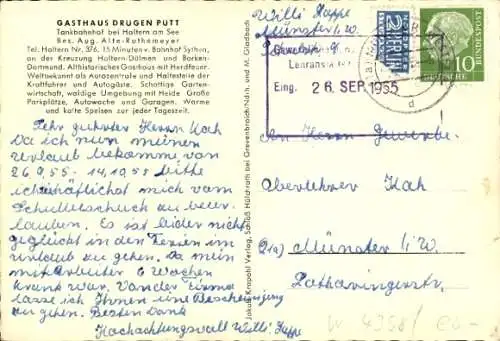 GASTHAUS DRUGEN PUTT
Tankbahnhof bei Haltern am See
Bes. Aug. Alte-Ruthemeyer
Tel. Haltern Nr. 376, 15 Minuten v. Bahnhof Sythen,
an der Kreuzung Haltern-Dülmen und Borken-
Dortmund. Althistorisches Gasthaus mit Herdfeuer.
Weltbekannt als Autozentrale und Haltestelle der
Kraftfahrer und Autogäste. Schattige Garten-
wirtschaft, waldige Umgebung mit Heide. Große
Parkplätze, Autowache und Garagen. Warme
und kalte Speisen zur jeder Tageszeit.
Sehr geehrter Herrn Kah
Da ich nun meinen
Urlaub bekomme von
26.9.55 - 14.10.55 bitte
ich höflichst mich vom
zu beur-
lauben. Es ist leider nicht
geglückt in den Ferien im
Urlaub zu gehen. Da mein
mitarbeiter 6 Wochen
krank war. Von der Firma
lasse ich Ihnen eine Bescheinigung
zu gehen. Besten Dank
Hochachtungsvoll Willi Kappe
Jakob Krapohl Verlag, Schloß Hülchrath bei Grevenbroich/Ndrh. und M. Gladbach
Willi Kappe
Münster i. W.
Eing. 26. SEP. 1955
2 NOTOPFER BERLIN
DEUTSCHE BUNDESPOST
10
d
An Herrn Gewerbe-
Oberlehrer Kah
21a) Münster i/W.